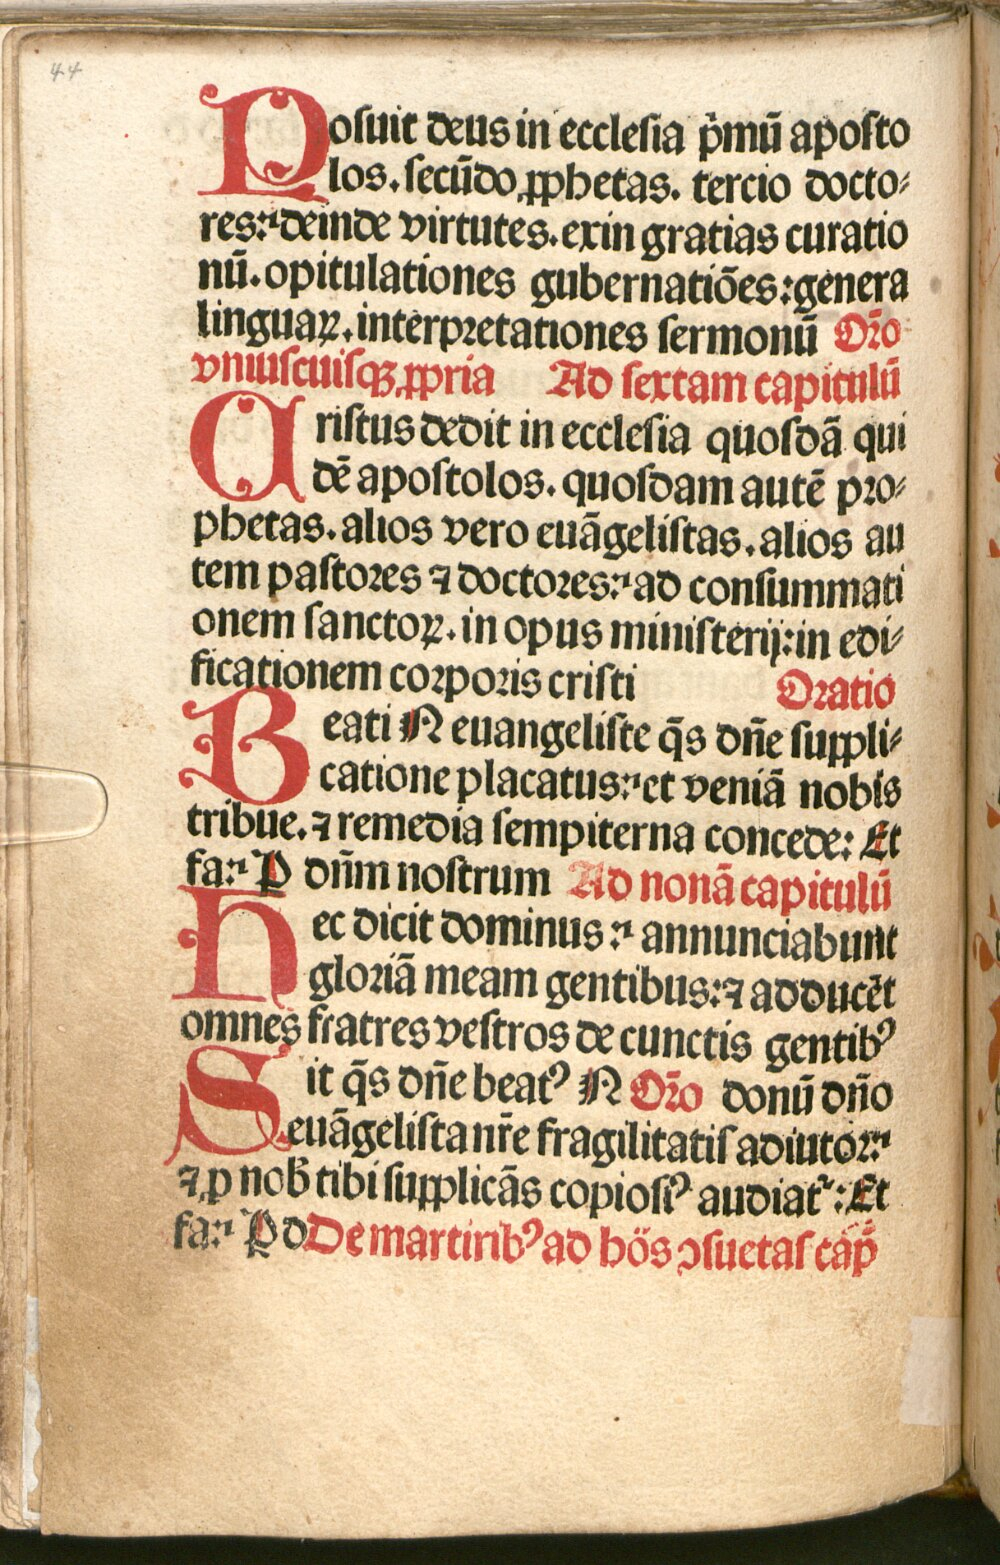 44
Posuit deus in ecclesia p̓mū aposto
los. secūdo ꝓphetas. tercio docto⸗
res: deinde virtutes. exin gratias curatio
nū. opitulationes gubernatiōes: genera
linguaꝝ. interpretationes sermonū Or̄o
vniuscuiusqꝫ ꝓpria Ad sextam capitulū
Cristus dedit in ecclesia quosdā qui
dē apostolos. quosdam autē pro⸗
phetas. alios vero euāgelistas. alios au
tem pastores ⁊ doctores: ad consummati
onem sanctoꝝ. in opus ministerij: in edi⸗
ficationem corporis cristi Oratio
Beati N euangeliste q̄s dn̄e suppli⸗
catione placatus: et veniā nobis
tribue. ⁊ remedia sempiterna concede: Et
fa: P dn̄m nostrum Ad nonā capitulū
Hec dicit dominus: annunciabunt
gloriā meam gentibus: ⁊ adducēt
omnes fratres vestros de cunctis gentibꝰ
Sit q̄s dn̄e beatꝰ N Or̄o donū dn̄o
euāgelista nr̄e fragilitatis adiutor:
⁊ ꝓ nob̄ tibi supplicās copiosiꝰ audiat᷑: Et
fa: P d De martiribꝰ ad hōs ꝯsuetas cap̄